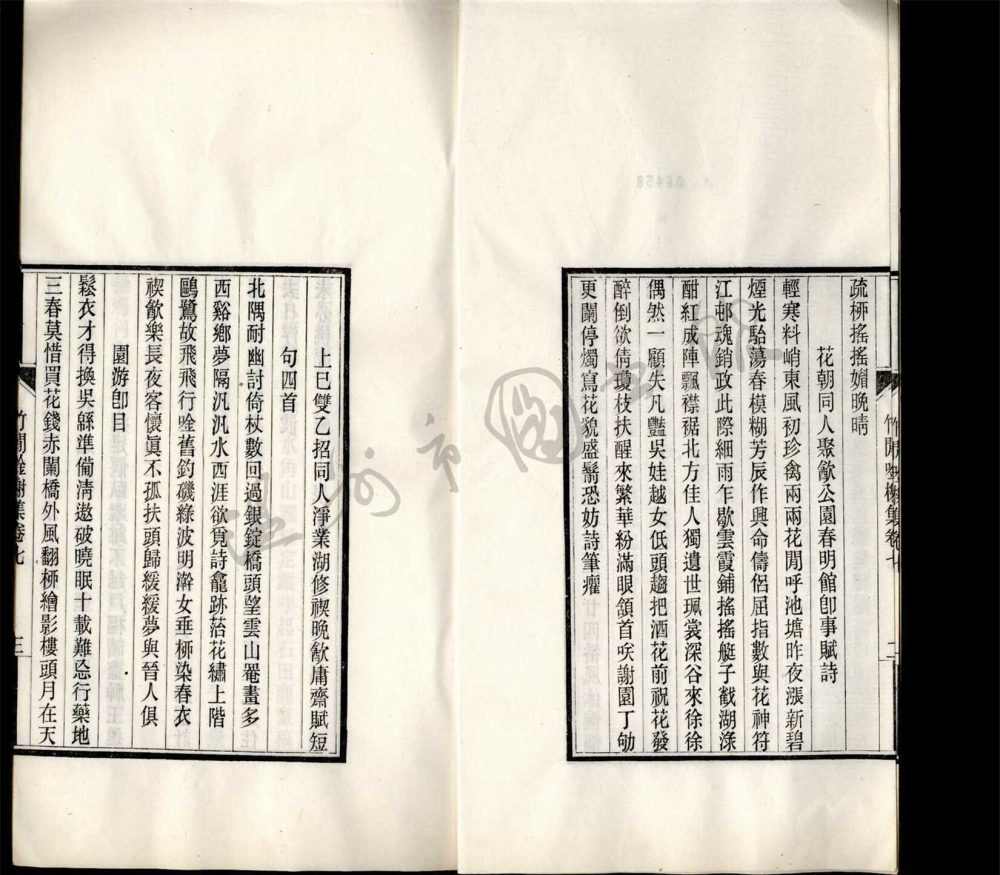 疏桺搖搖媚晚晴
花朝同人聚飮公園春明館卽事賦詩
輕寒料峭東風初珍禽兩兩花閒呼池塘昨夜漲新碧
煙光駘蕩春模糊芳辰作興命儔侶屈指數與花神符
江邨魂銷政此際細雨乍歇雲霞鋪搖搖艇子戲湖淥
酣紅成陣飄襟裾北方佳人獨遺世珮裳深谷來徐徐
偶然一顧失凡豔吳娃越女低頭趨把酒花前祝花發
醉倒欲倩瓊枝扶醒來繁華粉滿眼頷首咲謝園丁劬
更闌停燭寫花貌盛鬋恐妨詩筆癯
竹閒唫榭集卷七
二
上巳雙乙招同人淨業湖修禊晚飮庸齋賦短
句四首
北隅耐幽討倚杖數回過銀錠橋頭望雲山罨畫多
西谿鄉夢隔汎汎水西涯欲覓詩龕跡菭花繡上階
鷗鷺故飛飛行唫舊釣磯綠波明澣女垂桺染春衣
禊飮樂長夜客懷眞不孤扶頭歸緩緩夢與晉人俱
園游卽目
鬆衣才得換吳緜準備淸遨破曉眠十載難忘行藥地
三春莫惜買花錢赤闌橋外風翻桺繪影樓頭月在天
竹閒唫榭集卷七
三